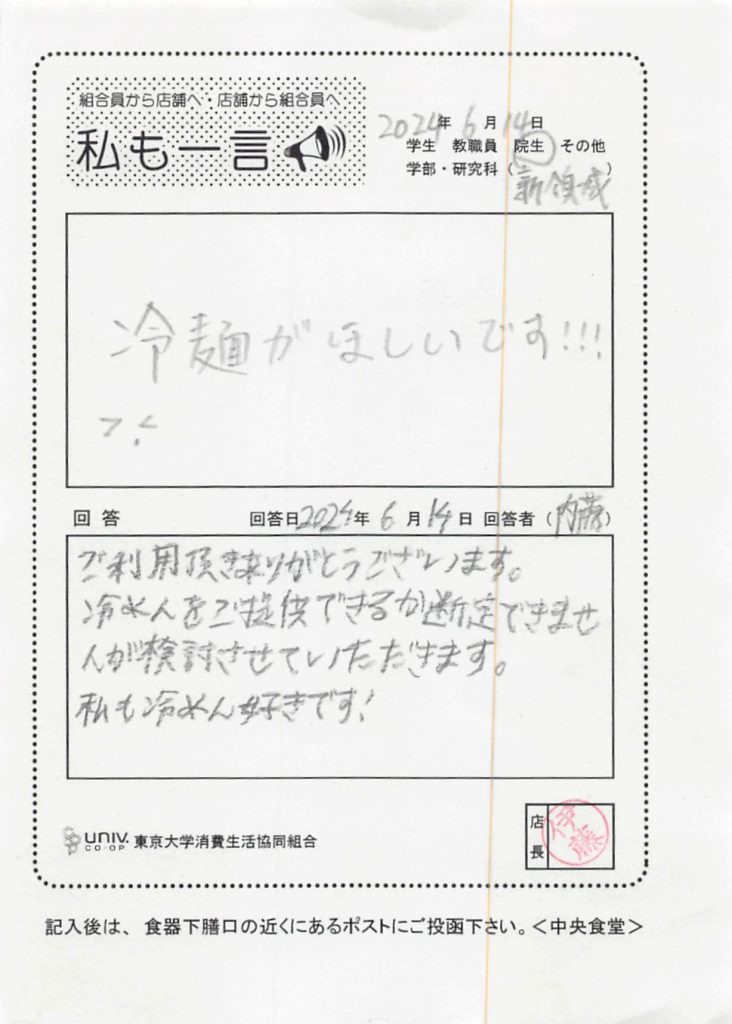 組合員から店舗へ・店舗から組合員へ
私も一言
2024年 6月 14日
学生 教職員 院生 その他
学部・研究科(新領域)
冷麺がほしいです!!!
回答 回答日2024年 6月 14日 回答者(内藤)
ご利用頂きありがとうございます。
冷めんをご提供できるか断定できませ
んが検討させていただきます。
私も冷めん好きです!
店長
伊藤
UNIV. CO・OP 東京大学消費生活協同組合
記入後は、食器下膳口の近くにあるポストにご投函下さい。<中央食堂>